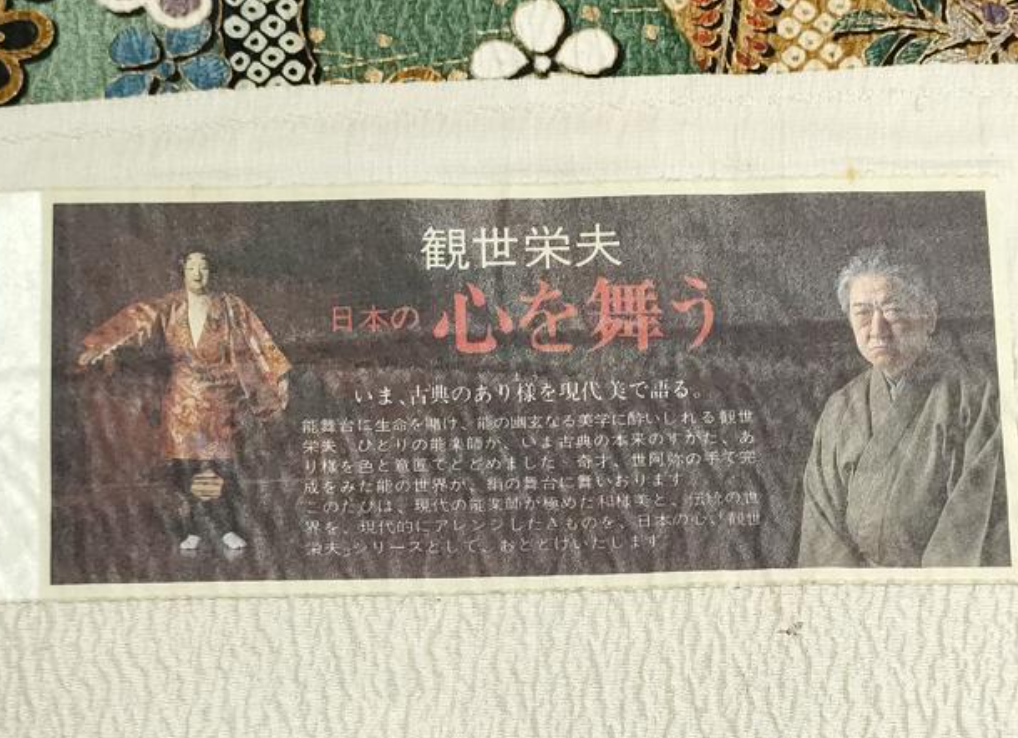 観世栄夫
日本の心を舞う
いま、古典のあり様を現代美で語る。
能舞台に生命を賭け、能の幽玄なる美学に酔いしれる観世
栄夫 ひとりの能楽師が、いま古典の本来のすがた、あ
り様を色と意匠でとどめました 奇才、世阿弥の手で完
成をみた能の世界が、絹の舞台に舞いおります
このたびは、現代の能楽師が極めた和様美と、伝統の世
界を、現代的にアレンジしたきものを、日本の心、「観世
栄夫」シリーズとして、おとどけいたします